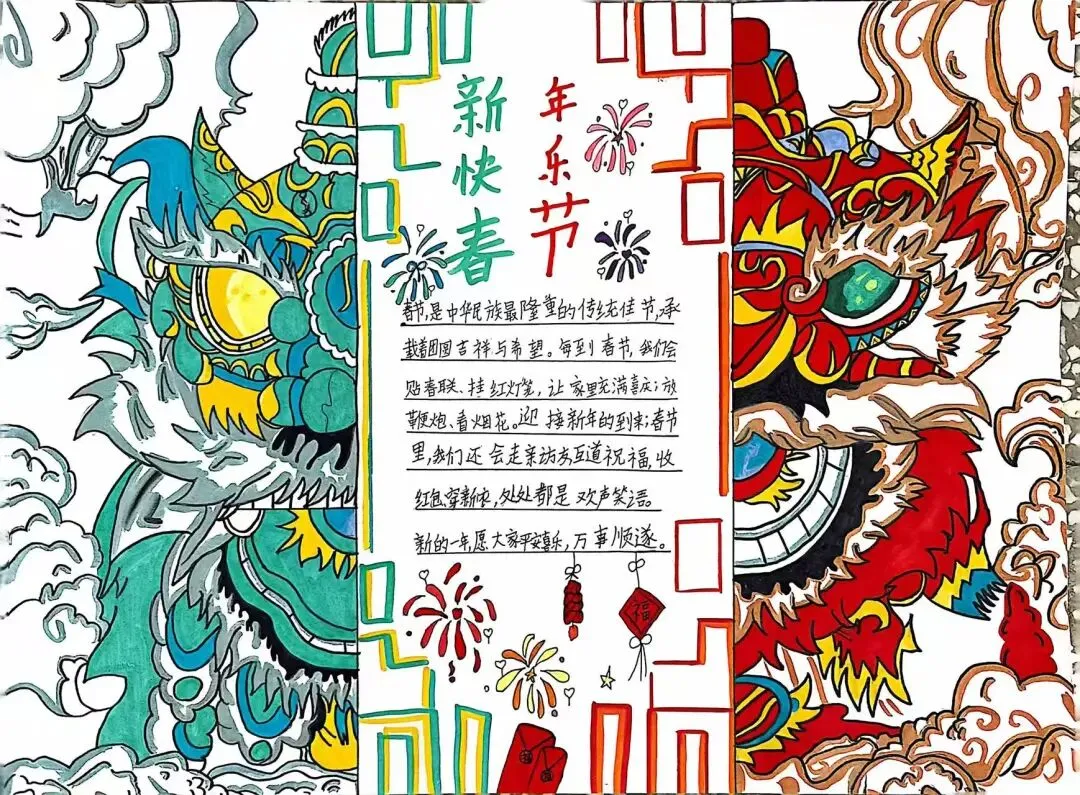 新年
快乐
春节
春节,是中华民族最隆重的传统佳节,承
载着团圆吉祥与希望。每到春节,我们会
贴春联、挂红灯笼,让家里充满喜庆;放
鞭炮、看烟花。迎接新年的到来;春节
里,我们还会走亲访友互道祝福,收
红包,穿新衣,处处都是欢声笑语。
新的一年,愿大家平安喜乐,万事顺遂。
福